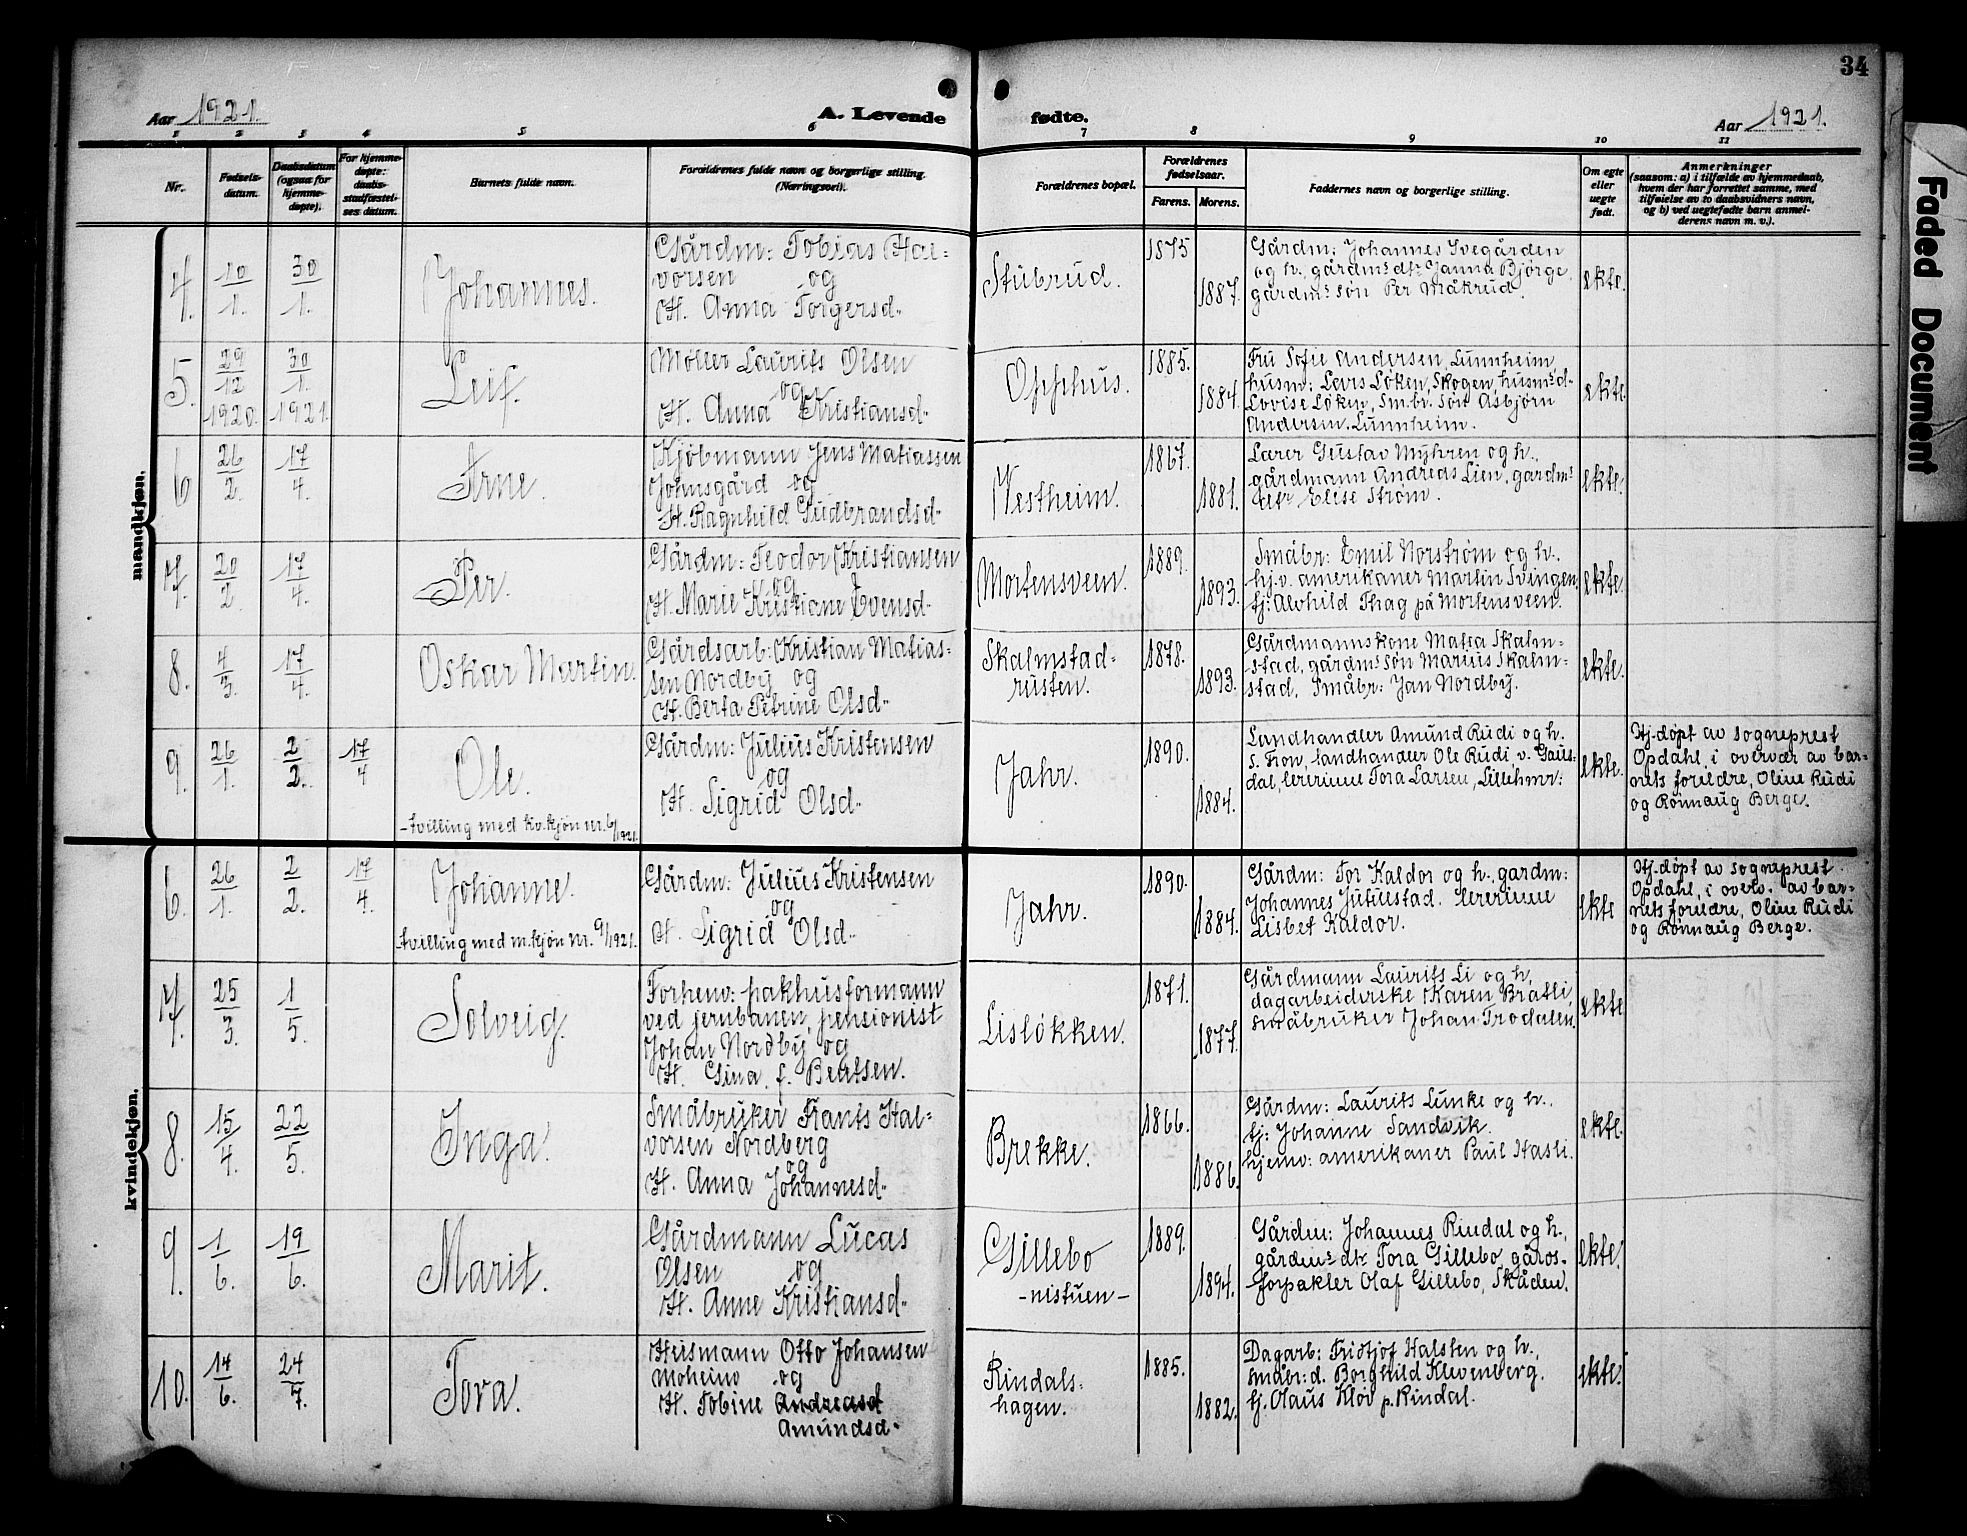 34
Aar 1921.
A. Levende
fødte.
Aar 1921.
1 2 3 4 5 6 7 8 9 10 11
Nr.
Fødsels-
datum.
Daabsdatum
(ogsaa for
hjemme-
døpte).
For hjemme-
døpte:
daabs-
stadfæstel-
ses datum.
Barnets fulde navn.
Forældrenes fulde navn og borgerlige stilling.
(Næringsvei).
Forældrenes bopæl.
Forældrenes
fødselsaar.
Farens.
Morens.
Faddernes navn og borgerlige stilling.
Om egte
eller
uegte
født.
Anmerkninger
(saasom: a) i tilfælde av hjemmedaab,
hvem der har forrettet samme, med
tilføielse av to daabsvidners navn,
og b) ved uegtefødte barn anmel-
derens navn m. v.).
mandkjøn.
4.
10/1.
30/1.
Johannes.
Gårdm: Tobias Hal=
vorsen og
H. Anna Torgersd-
Stubrud.
1875
1887.
Gårdm: Johannes Ivegården
og h. gårdms dtr Janna Bjørge,
gårdms søn Per Måkrud.
ekte.
5.
29/12
1920.
30/1.
1921.
Leif.
Møller Laurits Olsen
og
H. Anna Kristiansd-
Opphus.
1885.
1884.
Fru Sofie Andersen, Lunnheim,
husm: Lars Løken, Skogen, husms d-
Lovise Løken, Sm.br. søn Asbjørn
Andersen, Lunnheim.
ekte.
6
26/2.
17/4.
Arne.
Kjøbmann Jens Matiassen
Johnsgård og
H. Ragnhild Gudbrandsd-
Vestheim.
1867.
1881.
Lærer Gustav Myhren og h.,
gårdmann Andreas Lien, gardms
dtr Elise Strøm.
ekte.
7.
20/2.
17/4.
Per.
Gårdm: Teodor Kristiansen
og
H. Marie Kristiane Evensd-
Mortensveen.
1889.
1893.
Småbr: Emil Norstrøm og h.
hj.v. amerikaner Martin Svingen,
tj: Alvhild Thag på Mortensveen.
ekte.
8.
4/3.
17/4.
Oskar Martin.
Gårdsarb: Kristian Matias-
sen Nordby og
H. Berta Petrine Olsd-
Skalmstad=
rusten.
1878.
1893.
Gårdmannskone Matea Skalm-
stad, gårdms søn Marius Skalm=
stad, Småbr: Jan Nordby.
ekte.
9.
26/1.
2/2.
17/4
Ole.
-tvilling med kv.kjøn nr. 6/1921.
Gårdm: Julius Kristensen
og
H. Sigrid Olsd-
Jahr.
1890.
1884.
Landhandler Amund Rudi og h.
S. Fron, landhandler Ole Rudi, v. Gaus-
dal, lererinne Tora Larsen, Lillehmr:
ekte.
Hj.døpt av sogneprest
Opdahl, i overvær av bar-
nets foreldre, Oline Rudi
og Rønnaug Berge.
kvindekjøn.
6.
26/1.
2/2.
17/4.
Johanne.
-tvilling med m.kjøn nr. 9/1921.
Gårdm: Julius Kristensen
og
H. Sigrid Olsd-
Jahr.
1890.
1884.
Gårdm: Tor Kaldor og h., gardm:
Johannes Juliustad, lererinne
Lisbet Kaldor.
ekte
Hj.døpt av sogneprest
Opdahl, i overv. av bar-
nets foreldre, Oline Rudi
og Rønnaug Berge.
7.
25/3.
1/5.
Solveig.
Forhenv: pakhusformann
ved jernbanen, pensionist
Johan Nordby og
H. Gina, f. Bentsen.
Lisløkken.
1871.
1877.
Gårdmann Laurits Li og h,
dagarbeiderske Karen Bratli,
småbruker Johan Trodalen.
ekte
8.
15/4.
22/5.
Inga.
Småbruker Frants Hal=
vorsen Nordberg
og
H. Anna Johannesd-
Brekke.
1866.
1886.
Gårdm: Laurits Lunke og h.,
tj: Johanne Sandvik.
hjemv: amerikaner Paul Hasli.
ekte.
9.
1/6.
19/6.
Marit.
Gårdmann Lucas
Olsen og
H. Anne Kristiansd-
Gillebo
-nistuen-
1889.
1894.
Gårdm: Johannes Rindal og h.,
gårdms dtr Tora Gillebo, gårds-
forpakter Olaf Gillebo, Skåden.
ekte.
10.
14/6.
24/7.
Tora.
Husmann Otto Johansen
Moheim og
H. Tobine Andreasd
Amundsd-
Rindals-
hagen.
1885.
1882.
Dagarb: Fridtjof Halsten og h.,
småbr: d. Borghild Klevenberg.
tj. Olaus Kløv p. Rindal.
ekte.
Faded Document